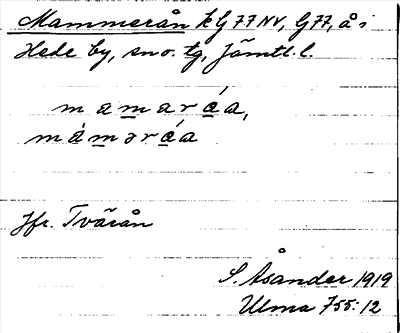 Mammerån k G 77 NV, G 77, å i
Hede by, sn o. tg, Jämtl. l.
m a m a r ǻ a,
m á m ə r ǻ a
Jfr. Tvärån
S. Åsander 1919
Ulma 755:12